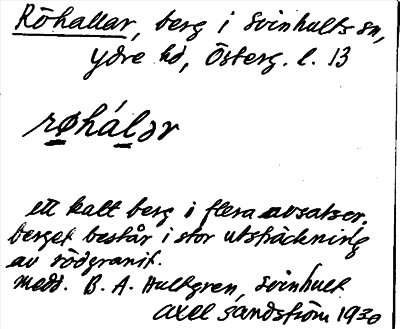 Röhallar, berg i Svinhults sn,
Ydre hd, Österg. l. 13
røhálәr
ett kalt berg i flera avsatser.
berget består i stor utsträckning
av rödgranit.
medd. B. A. Hultgren, Svinhult
Axel Sandström 1930